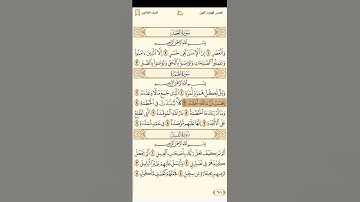 سورة العصر
بسم الله الرحمن الرحيم
والعصر ١ إن الإنسان لفي خسر ٢ إلا الذين ءامنوا
وعملوا الصالحات وتواصوا بالحق وتواصوا بالصبر ٣
سورة الهمزة
بسم الله الرحمن الرحيم
ويل لكل همزة لمزة ١ الذي جمع مالا وعدده ٢
يحسب أن ماله أخلده ٣ كلا لينبذن في الحطمة ٤
وما أدراك ما الحطمة ٥ نار الله الموقدة ٦ التي تطلع
على الأفئدة ٧ إنها عليهم مؤصدة ٨ في عمد ممددة ٩
سورة الفيل
بسم الله الرحمن الرحيم
ألم تر كيف فعل ربك بأصحاب الفيل ١ ألم يجعل
كيدهم في تضليل ٢ وأرسل عليهم طيرا أبابيل ٣
ترميهم بحجارة من سجيل ٤ فجعلهم كعصف مأكول ٥
٦٠١